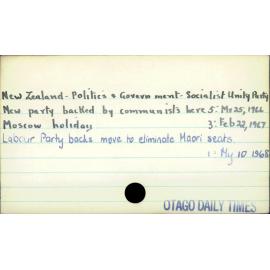 New Zealand - Politics & Government - Socialist Unity Party
New party backed by communists here 5: Mr 25, 1966
Moscow holiday 3: Feb 22, 1967
Labour Party backs move to eliminate Maori seats.
1: My 10 1968
OTAGO DAILY TIMES